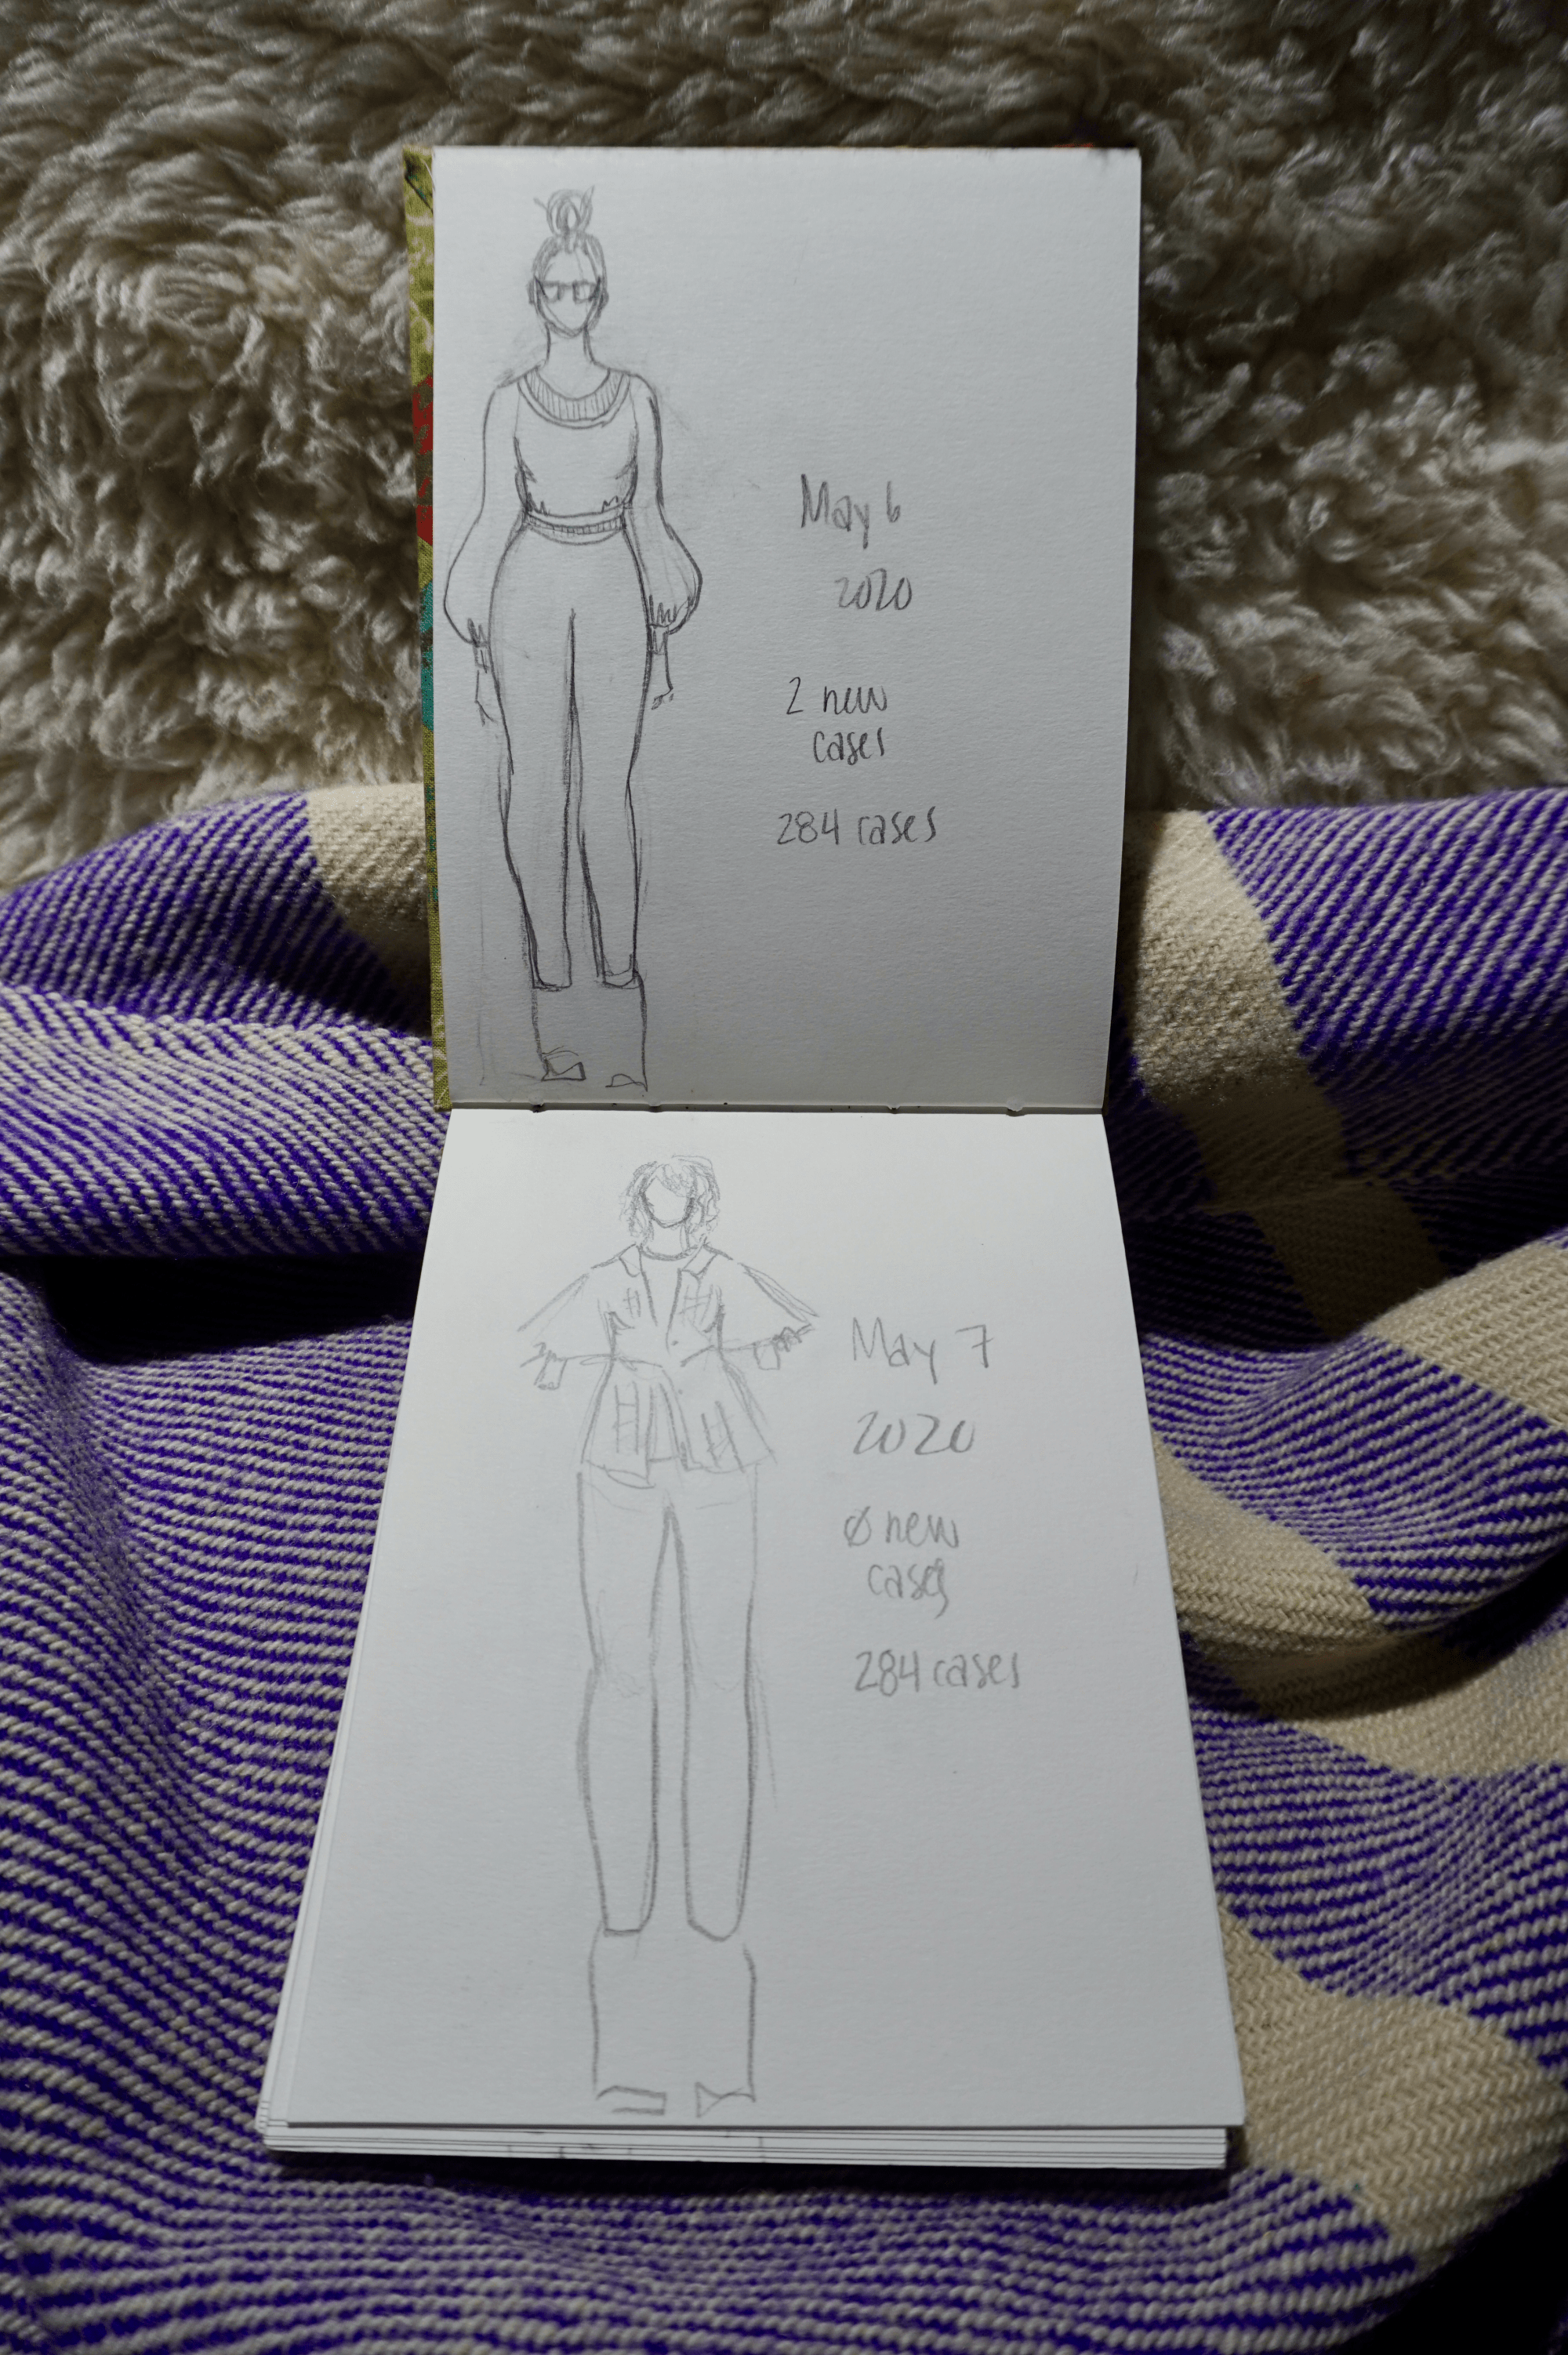 May 6
2020
2 new
cases
284 cases
May 7
2020
0 new
cases
284 cases